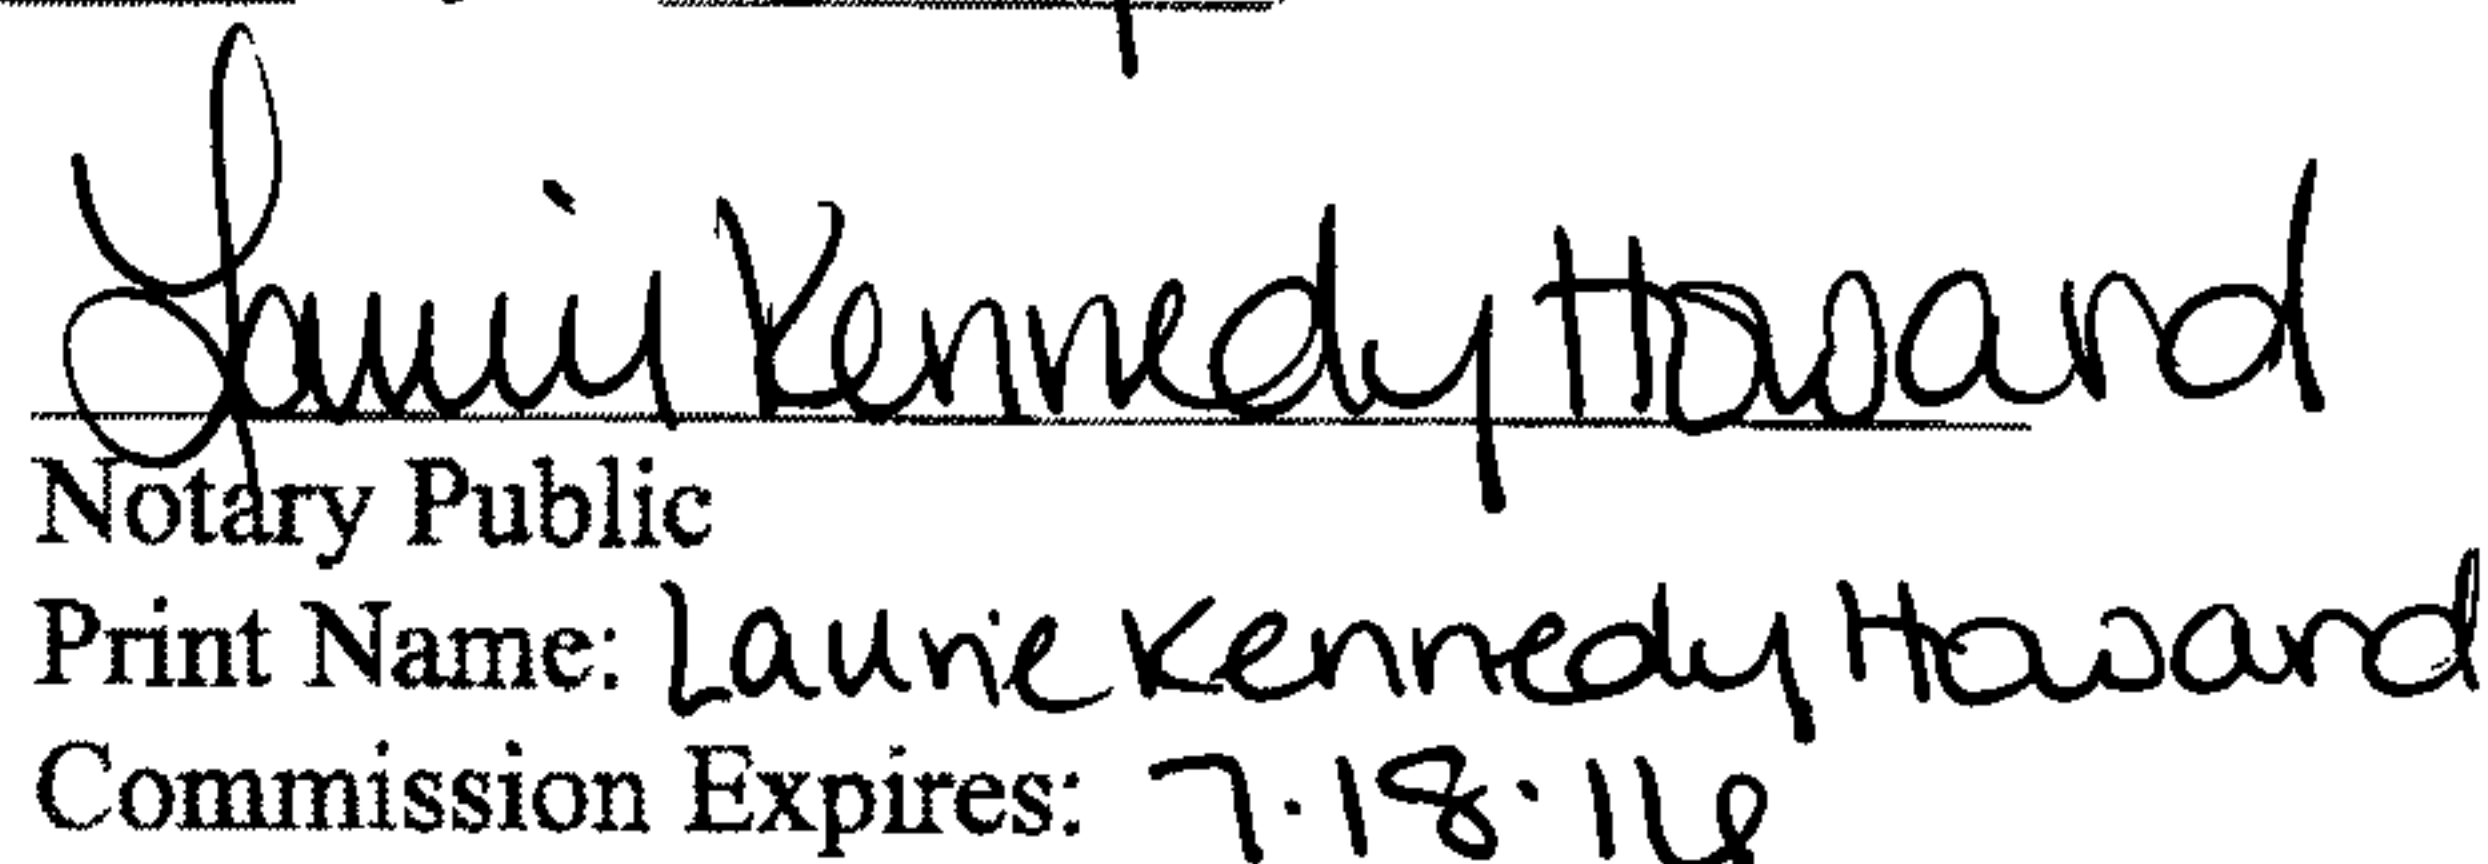 Laurie Kennedy Howard
Notary Public
Print Name: Laurie Kennedy Howard
Commission Expires: 7.18.16